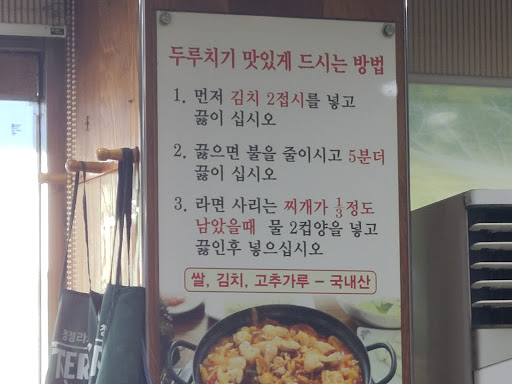 두루치기 맛있게 드시는 방법
1. 먼저 김치 2접시를 넣고
끓이 십시오
2. 끓으면 불을 줄이시고 5분더
끓이 십시오
3. 라면 사리는 찌개가 1/3정도
남았을때 물 2컵양을 넣고
끓인후 넣으십시오
쌀, 김치, 고추가루 – 국내산